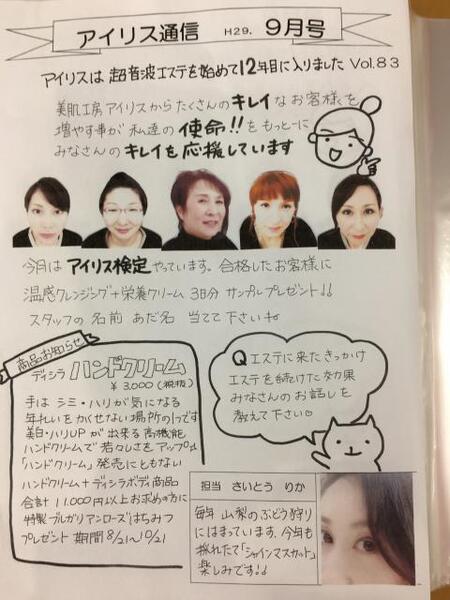 アイリス通信 H29. 9月号
アイリスは 超音波エステを始めて12年目に入りました Vol.83
美肌工房アイリスからたくさんのキレイなお客様を
増やす事が 私達の 使命!! をもっとーに
みなさんの キレイを応援しています
今月は アイリス検定 やっています。合格したお客様に
温感クレンジング+栄養クリーム 3日分 サンプルプレゼント!!
スタッフの 名前 あだ名 当てて下さいね
商品お知らせ
ディシラ ハンドクリーム
¥3,000(税抜)
手は シミ・ハリが気になる
年れいをかくせない場所の1つです
美白・ハリUPが出来る高機能
ハンドクリームで 若々しさをアップ!!
「ハンドクリーム」発売にともない
ハンドクリーム+ディシラボディ商品
合計 11.000円以上お求めの方に
特製 ブルガリアンローズはちみつ
プレゼント 期間8/21〜10/21
Q エステに来たきっかけ
エステを続けた効果
みなさんのお話しを
教えて下さい
担当 さいとう りか
毎年 山梨のぶどう狩り
にはまっています。今年も
採れたて「シャインマスカット」
楽しみです!!